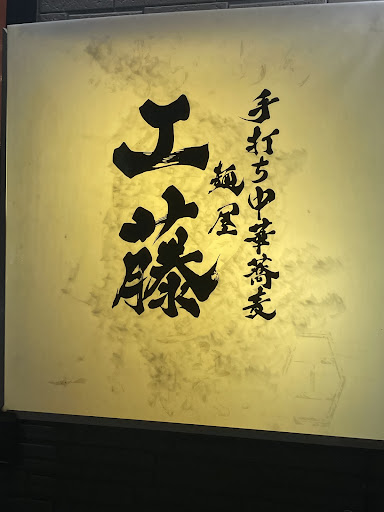 手打ち中華蕎麦
麺屋
工藤